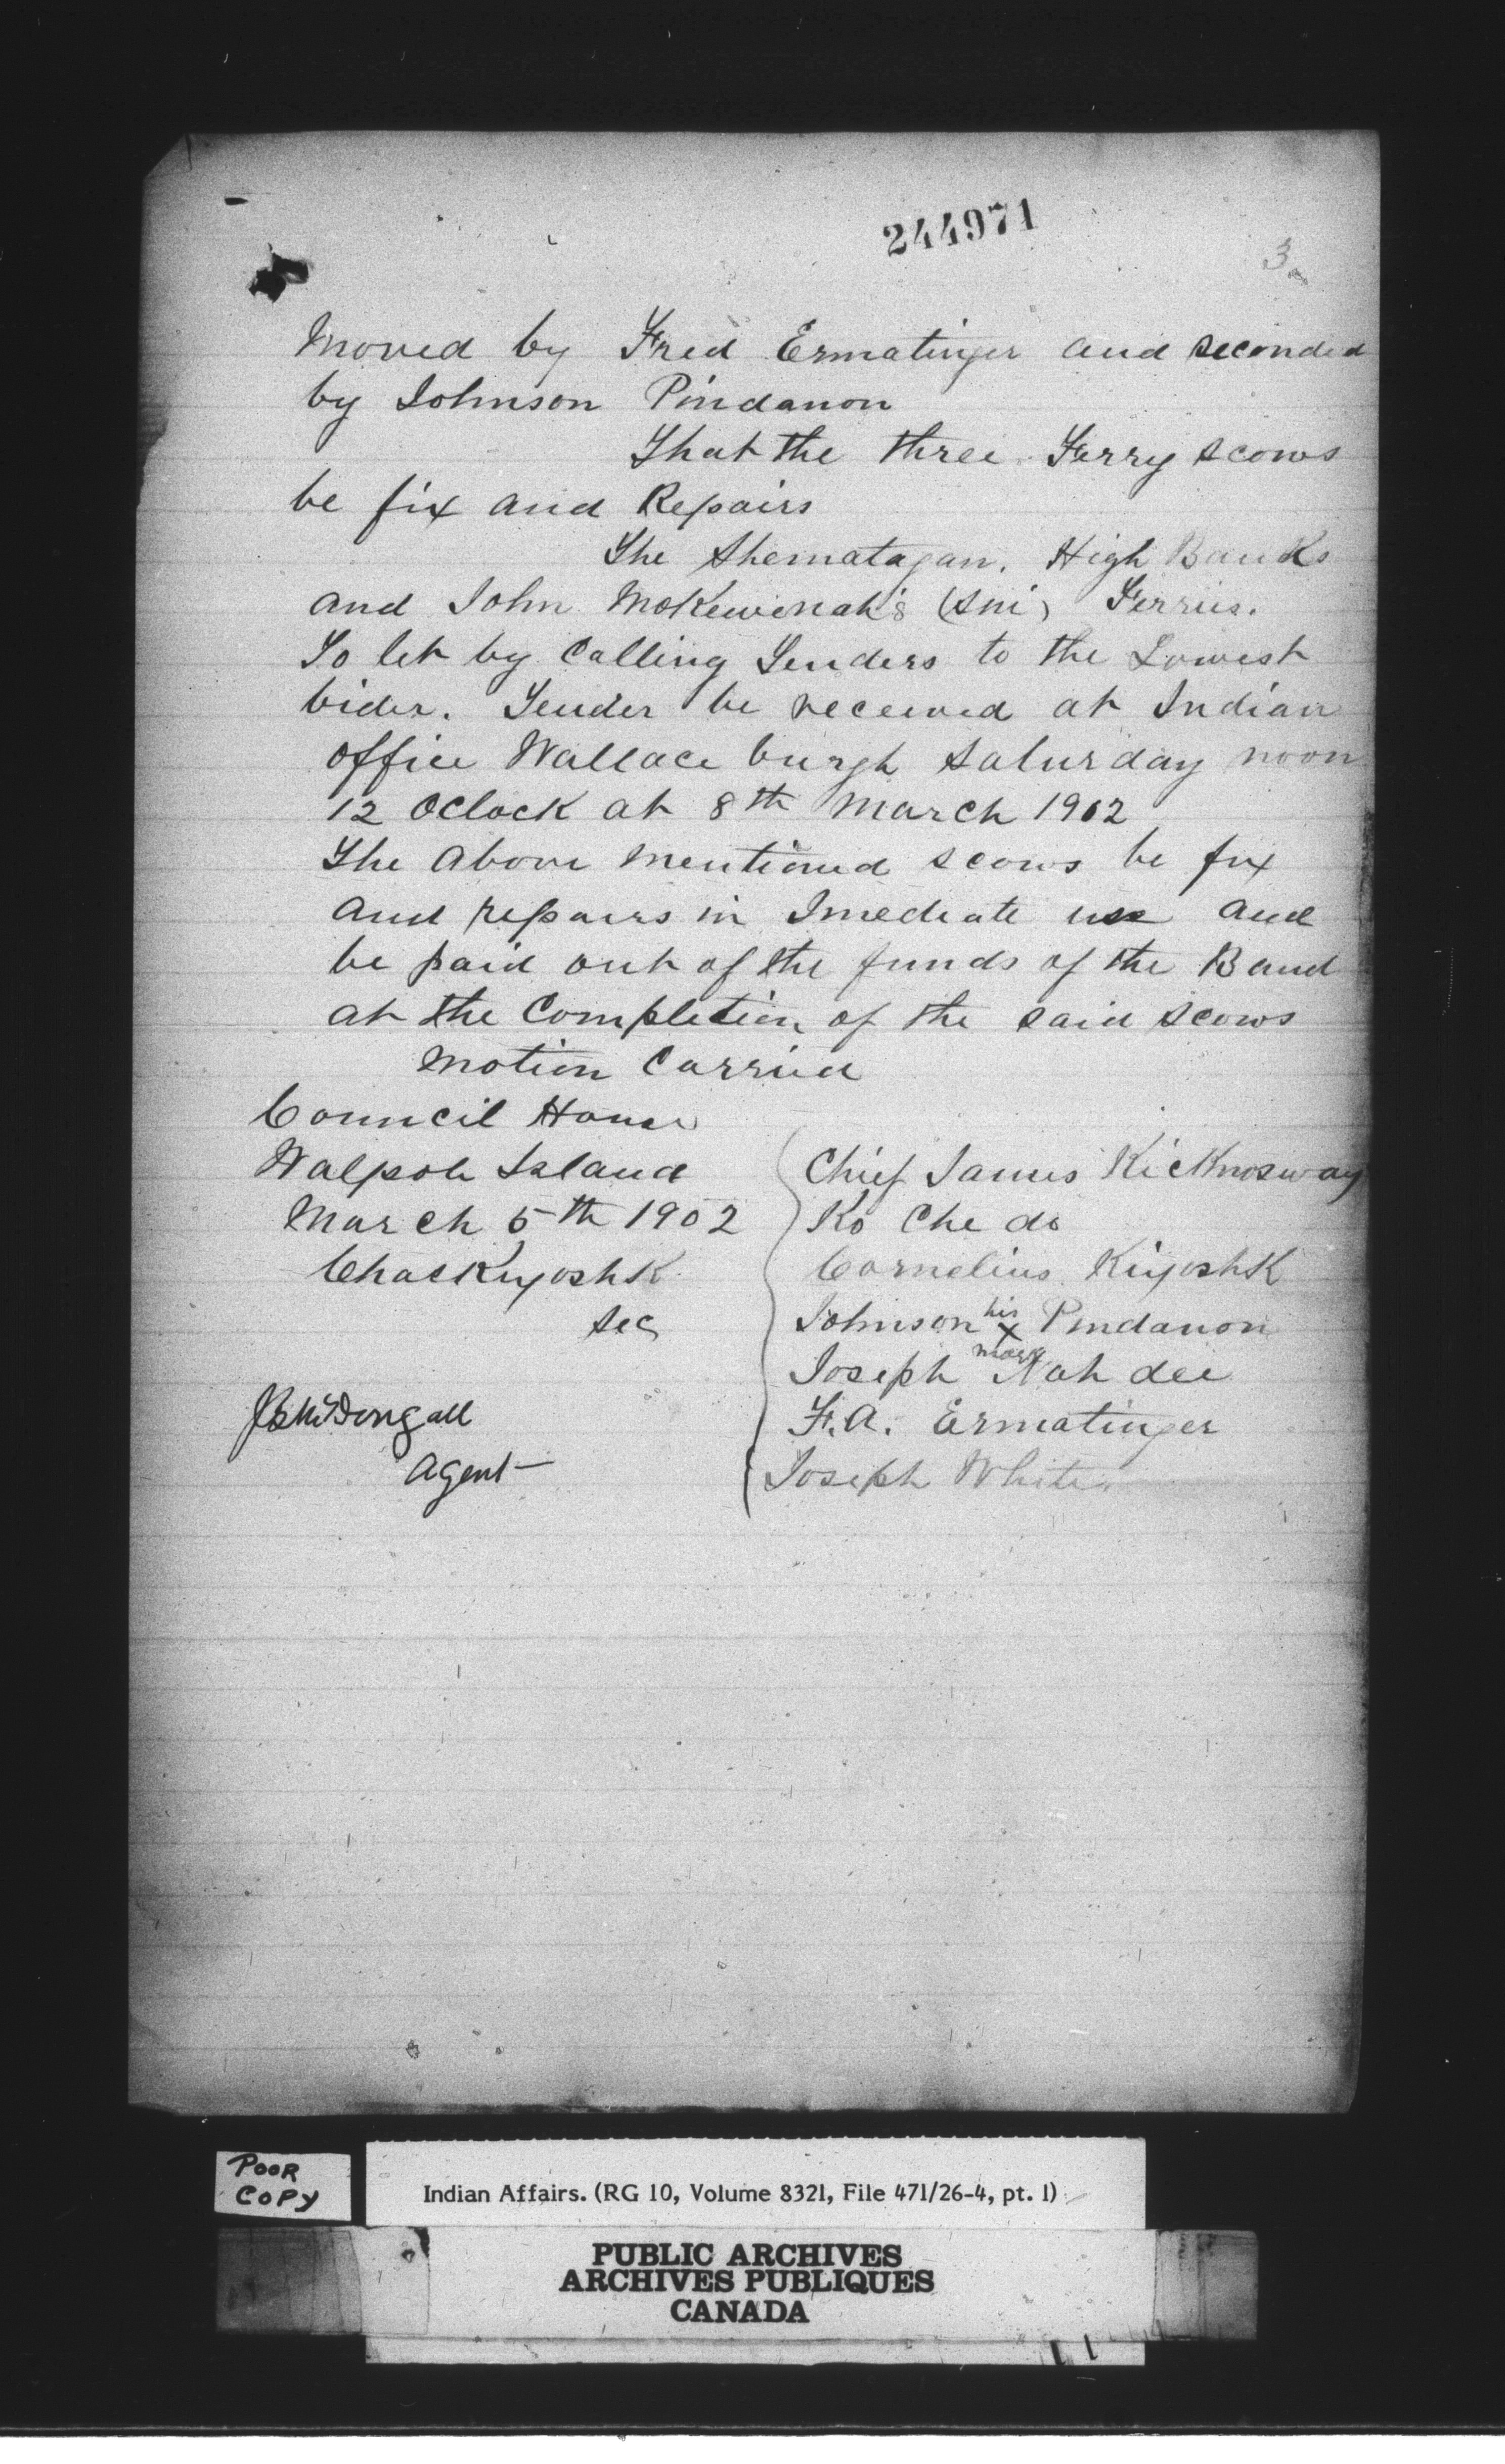 244971
3
Moved by Fred Ermatinger and seconded
by Johnson Pindanon
That the three Ferry scows
be fix and Repairs
The Shematagan. High Banks
and John Mokewenah's (Sni) Ferries.
To let by Calling Tenders to the Lowest
bider. Tender be received at Indian
office Wallace burgh Saturday noon
12 Oclock at 8th March 1902
The above mentioned scows be fix
and repairs in Imediate use and
be paid out of the funds of the Band
at the Completion of the said scows
Motion Carried
Council House
Walpole Island
March 5th 1902
Chas Kiyoshk
Sec
JB McDougall
Agent
Chief James Kicknosway
Ko Che do
Cornelius Kiyoshk
Johnson his x mark Pindanon
Joseph Nah dee
F.A. Ermatinger
Joseph White
POOR
COPY
Indian Affairs. (RG 10, Volume 8321, File 471/26-4, pt. 1)
PUBLIC ARCHIVES
ARCHIVES PUBLIQUES
CANADA